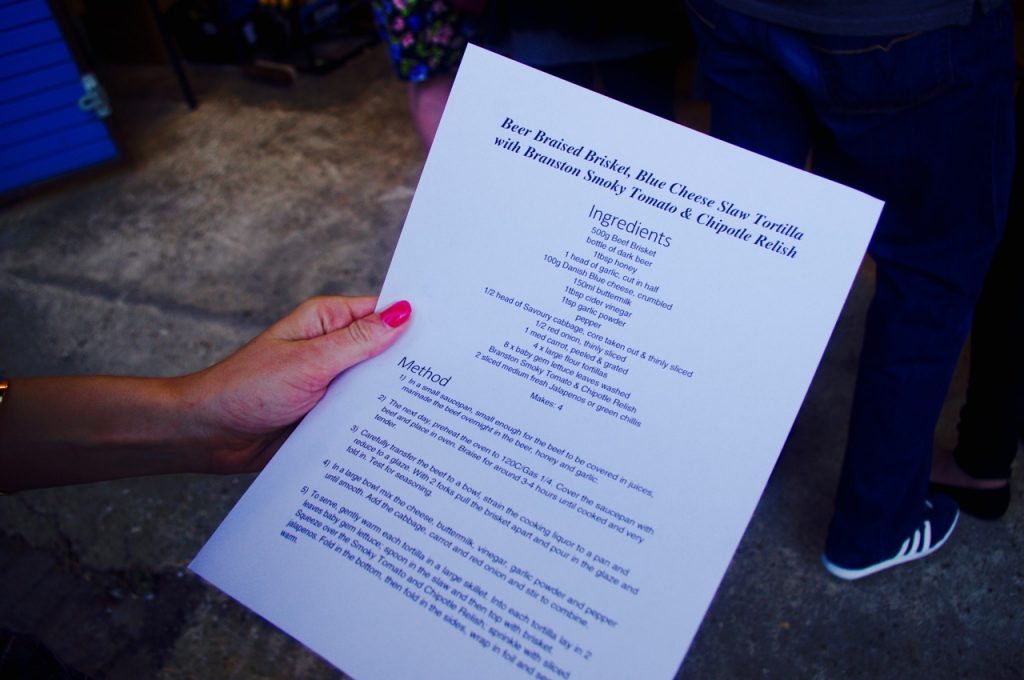 Beer Braised Brisket, Blue Cheese Slaw Tortilla
with Branston Smoky Tomato & Chipotle Relish
Ingredients
500g Beef Brisket
bottle of dark beer
1tbsp honey
1 head of garlic, cut in half
100g Danish Blue cheese, crumbled
150ml buttermilk
1tbsp cider vinegar
1tsp garlic powder
pepper
1/2 head of Savoury cabbage, core taken out & thinly sliced
1/2 red onion, thinly sliced
1 med carrot, peeled & grated
4 x large flour tortillas
8 x baby gem lettuce leaves washed
Branston Smoky Tomato & Chipotle Relish
2 sliced medium fresh Jalapenos or green chillis
Makes: 4
Method
1) In a small saucepan, small enough for the beef to be covered in juices,
marinade the beef overnight in the beer, honey and garlic.
2) The next day, preheat the oven to 120C/Gas 1/4. Cover the saucepan with
beef and place in oven. Braise for around 3-4 hours until cooked and very
tender.
3) Carefully transfer the beef to a bowl, strain the cooking liquor to a pan and
reduce to a glaze. With 2 forks pull the brisket apart and pour in the glaze and
fold in. Test for seasoning.
4) In a large bowl mix the cheese, buttermilk, vinegar, garlic powder and pepper
until smooth. Add the cabbage, carrot and red onion and stir to combine.
5) To serve, gently warm each tortilla in a large skillet. Into each tortilla lay in 2
leaves baby gem lettuce, spoon in the slaw and then top with brisket.
Squeeze over the Smoky Tomato and Chipotle Relish, sprinkle with sliced
jalapenos. Fold in the bottom, then fold in the sides, wrap in foil and
warm.